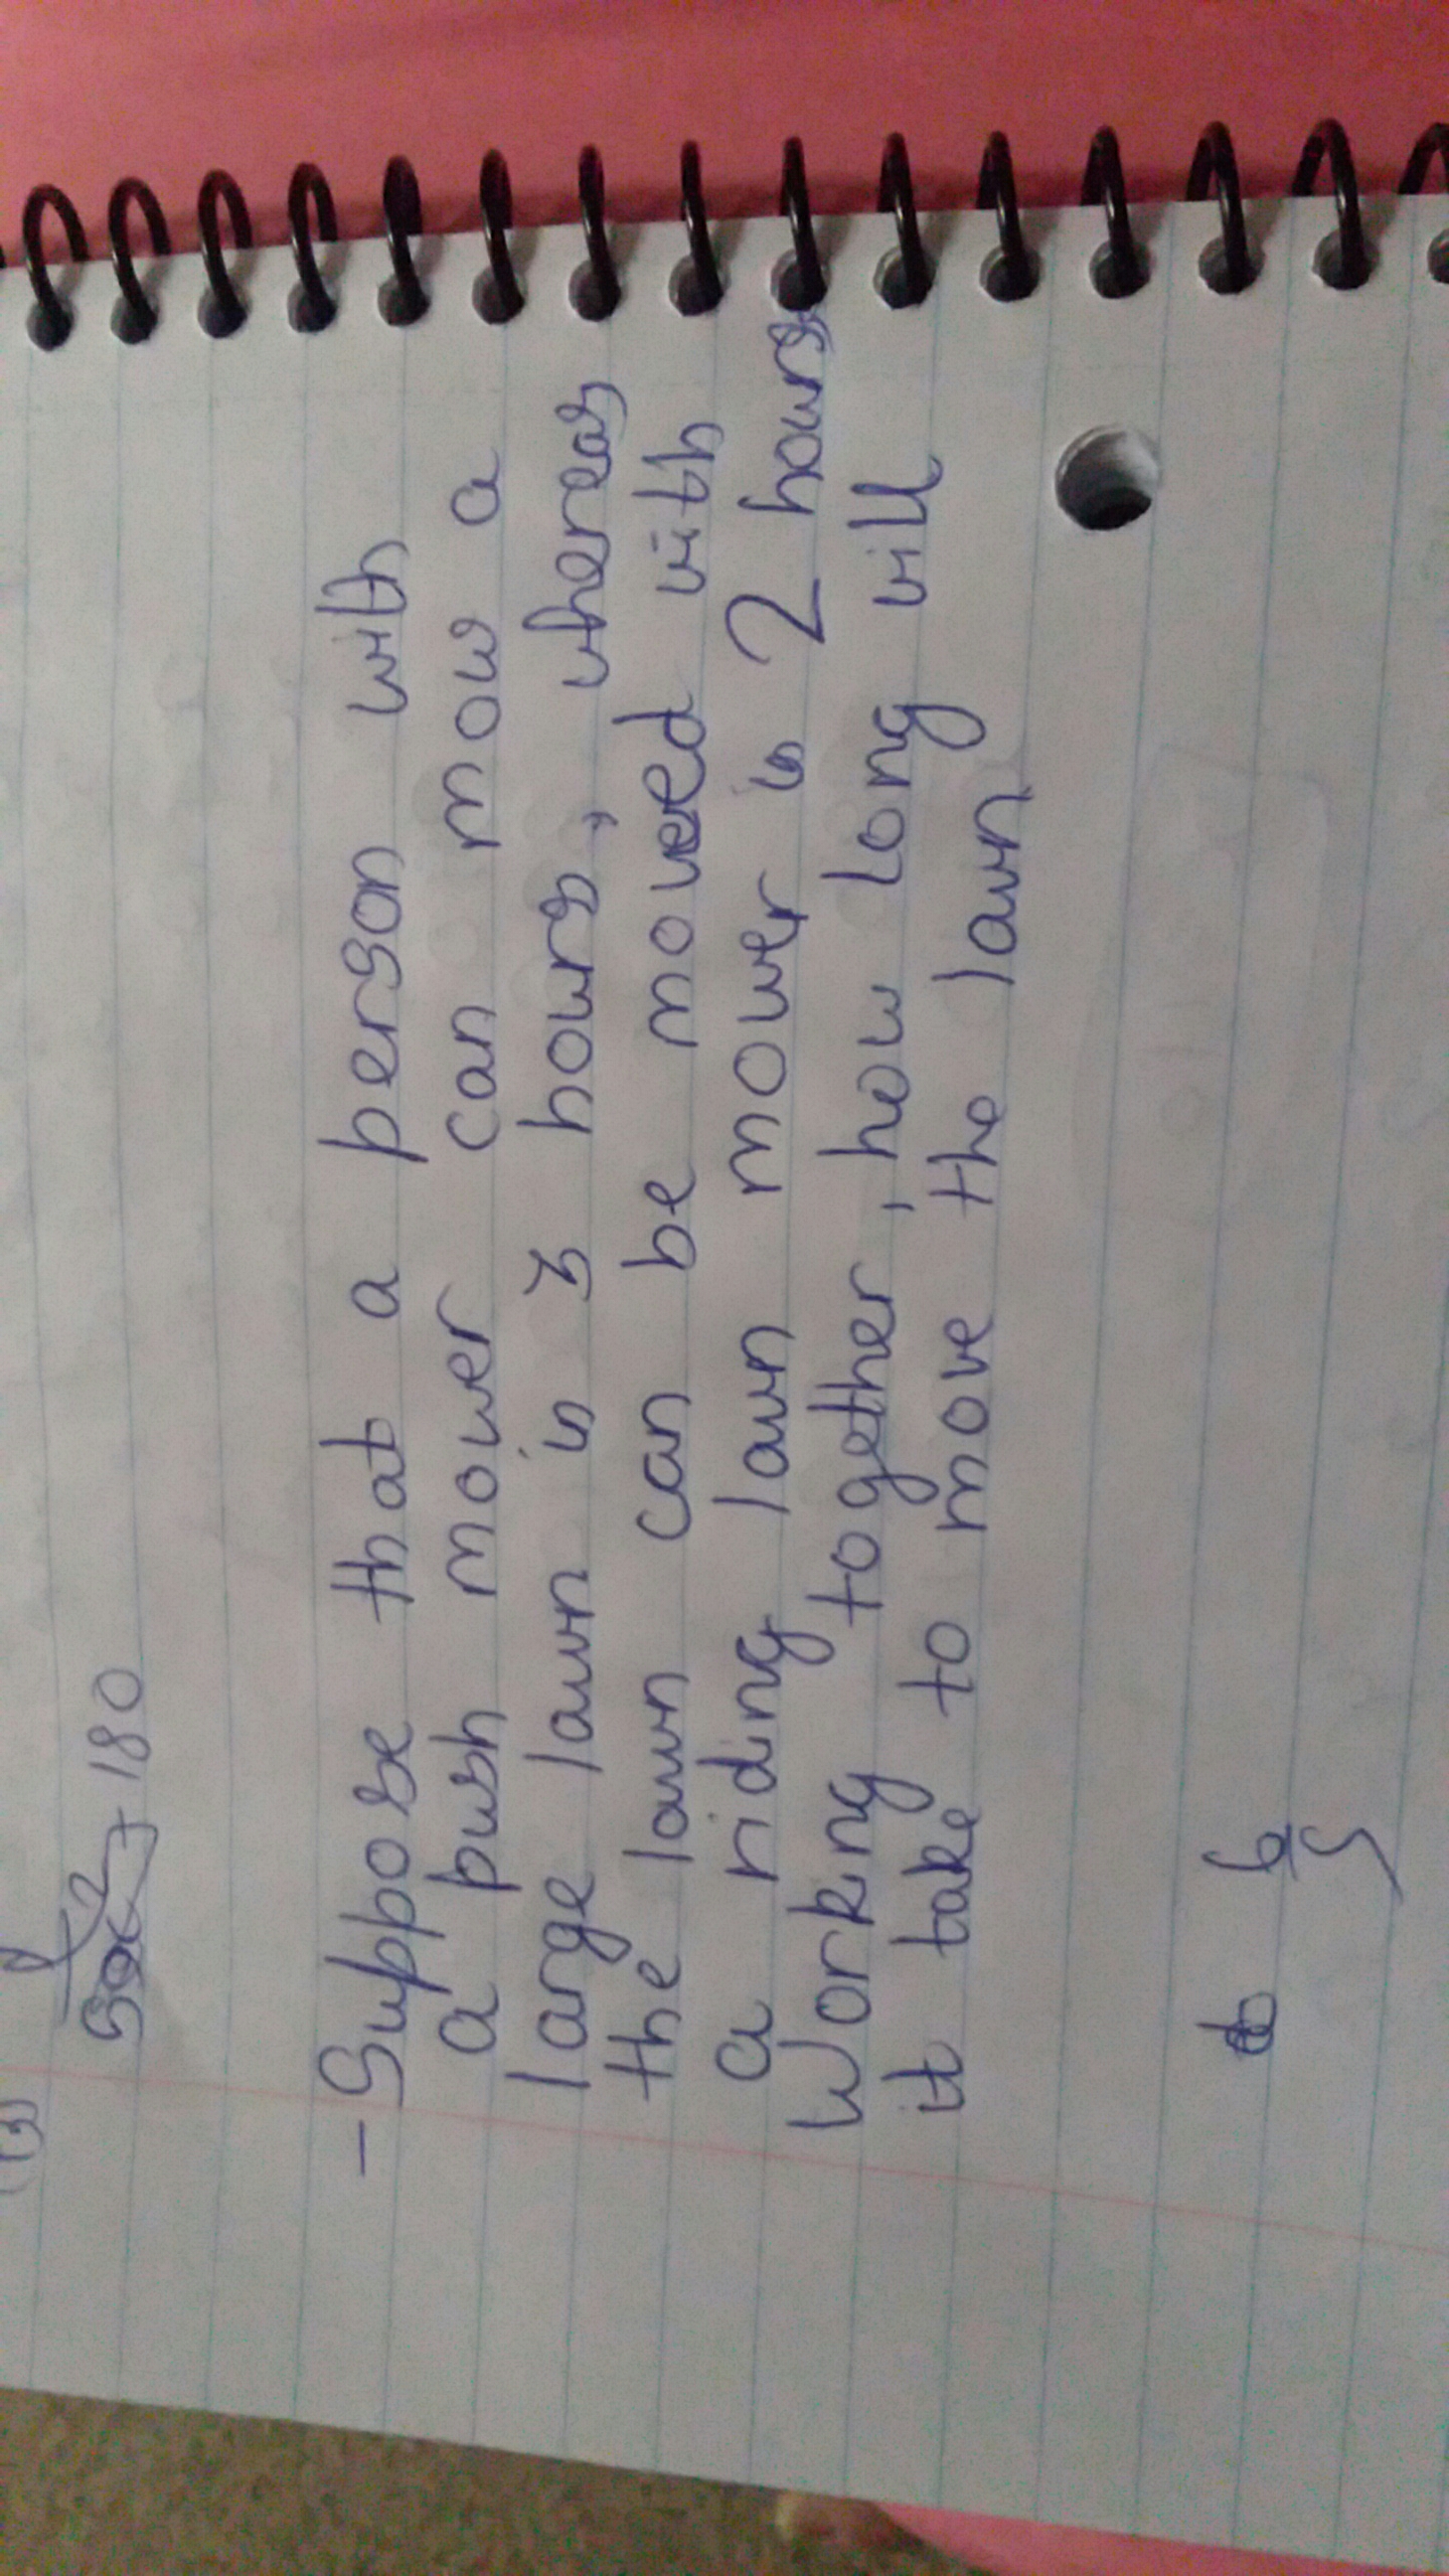 - 180
- Suppose that a person with
a push mower can mow a
large lawn in 3 hours, whereas
the lawn can be mowed with
a riding lawn mower in 2 hours
Working together, how long will
it take to move the lawn
6
5